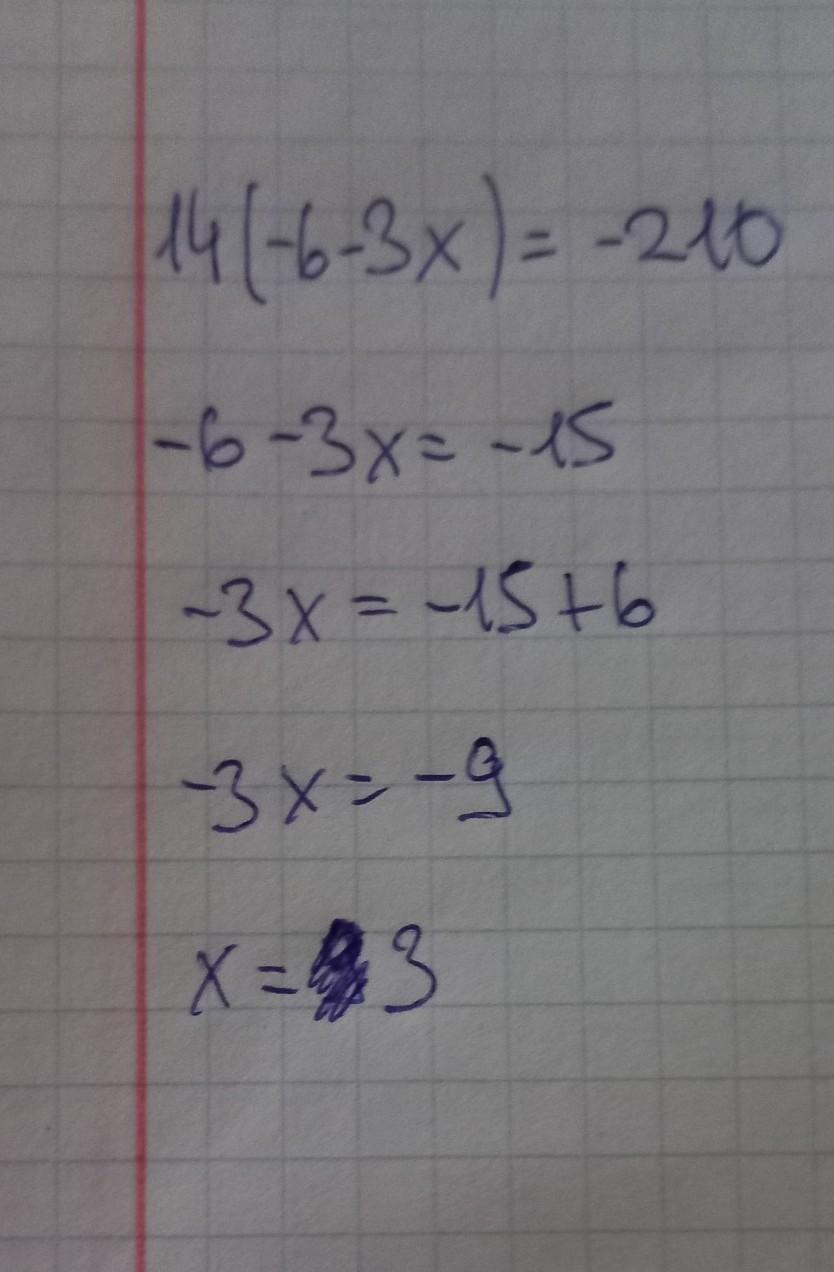 14(-6-3x)= -210
-6-3x= -15
-3x = -15+6
-3x = -9
x = 3